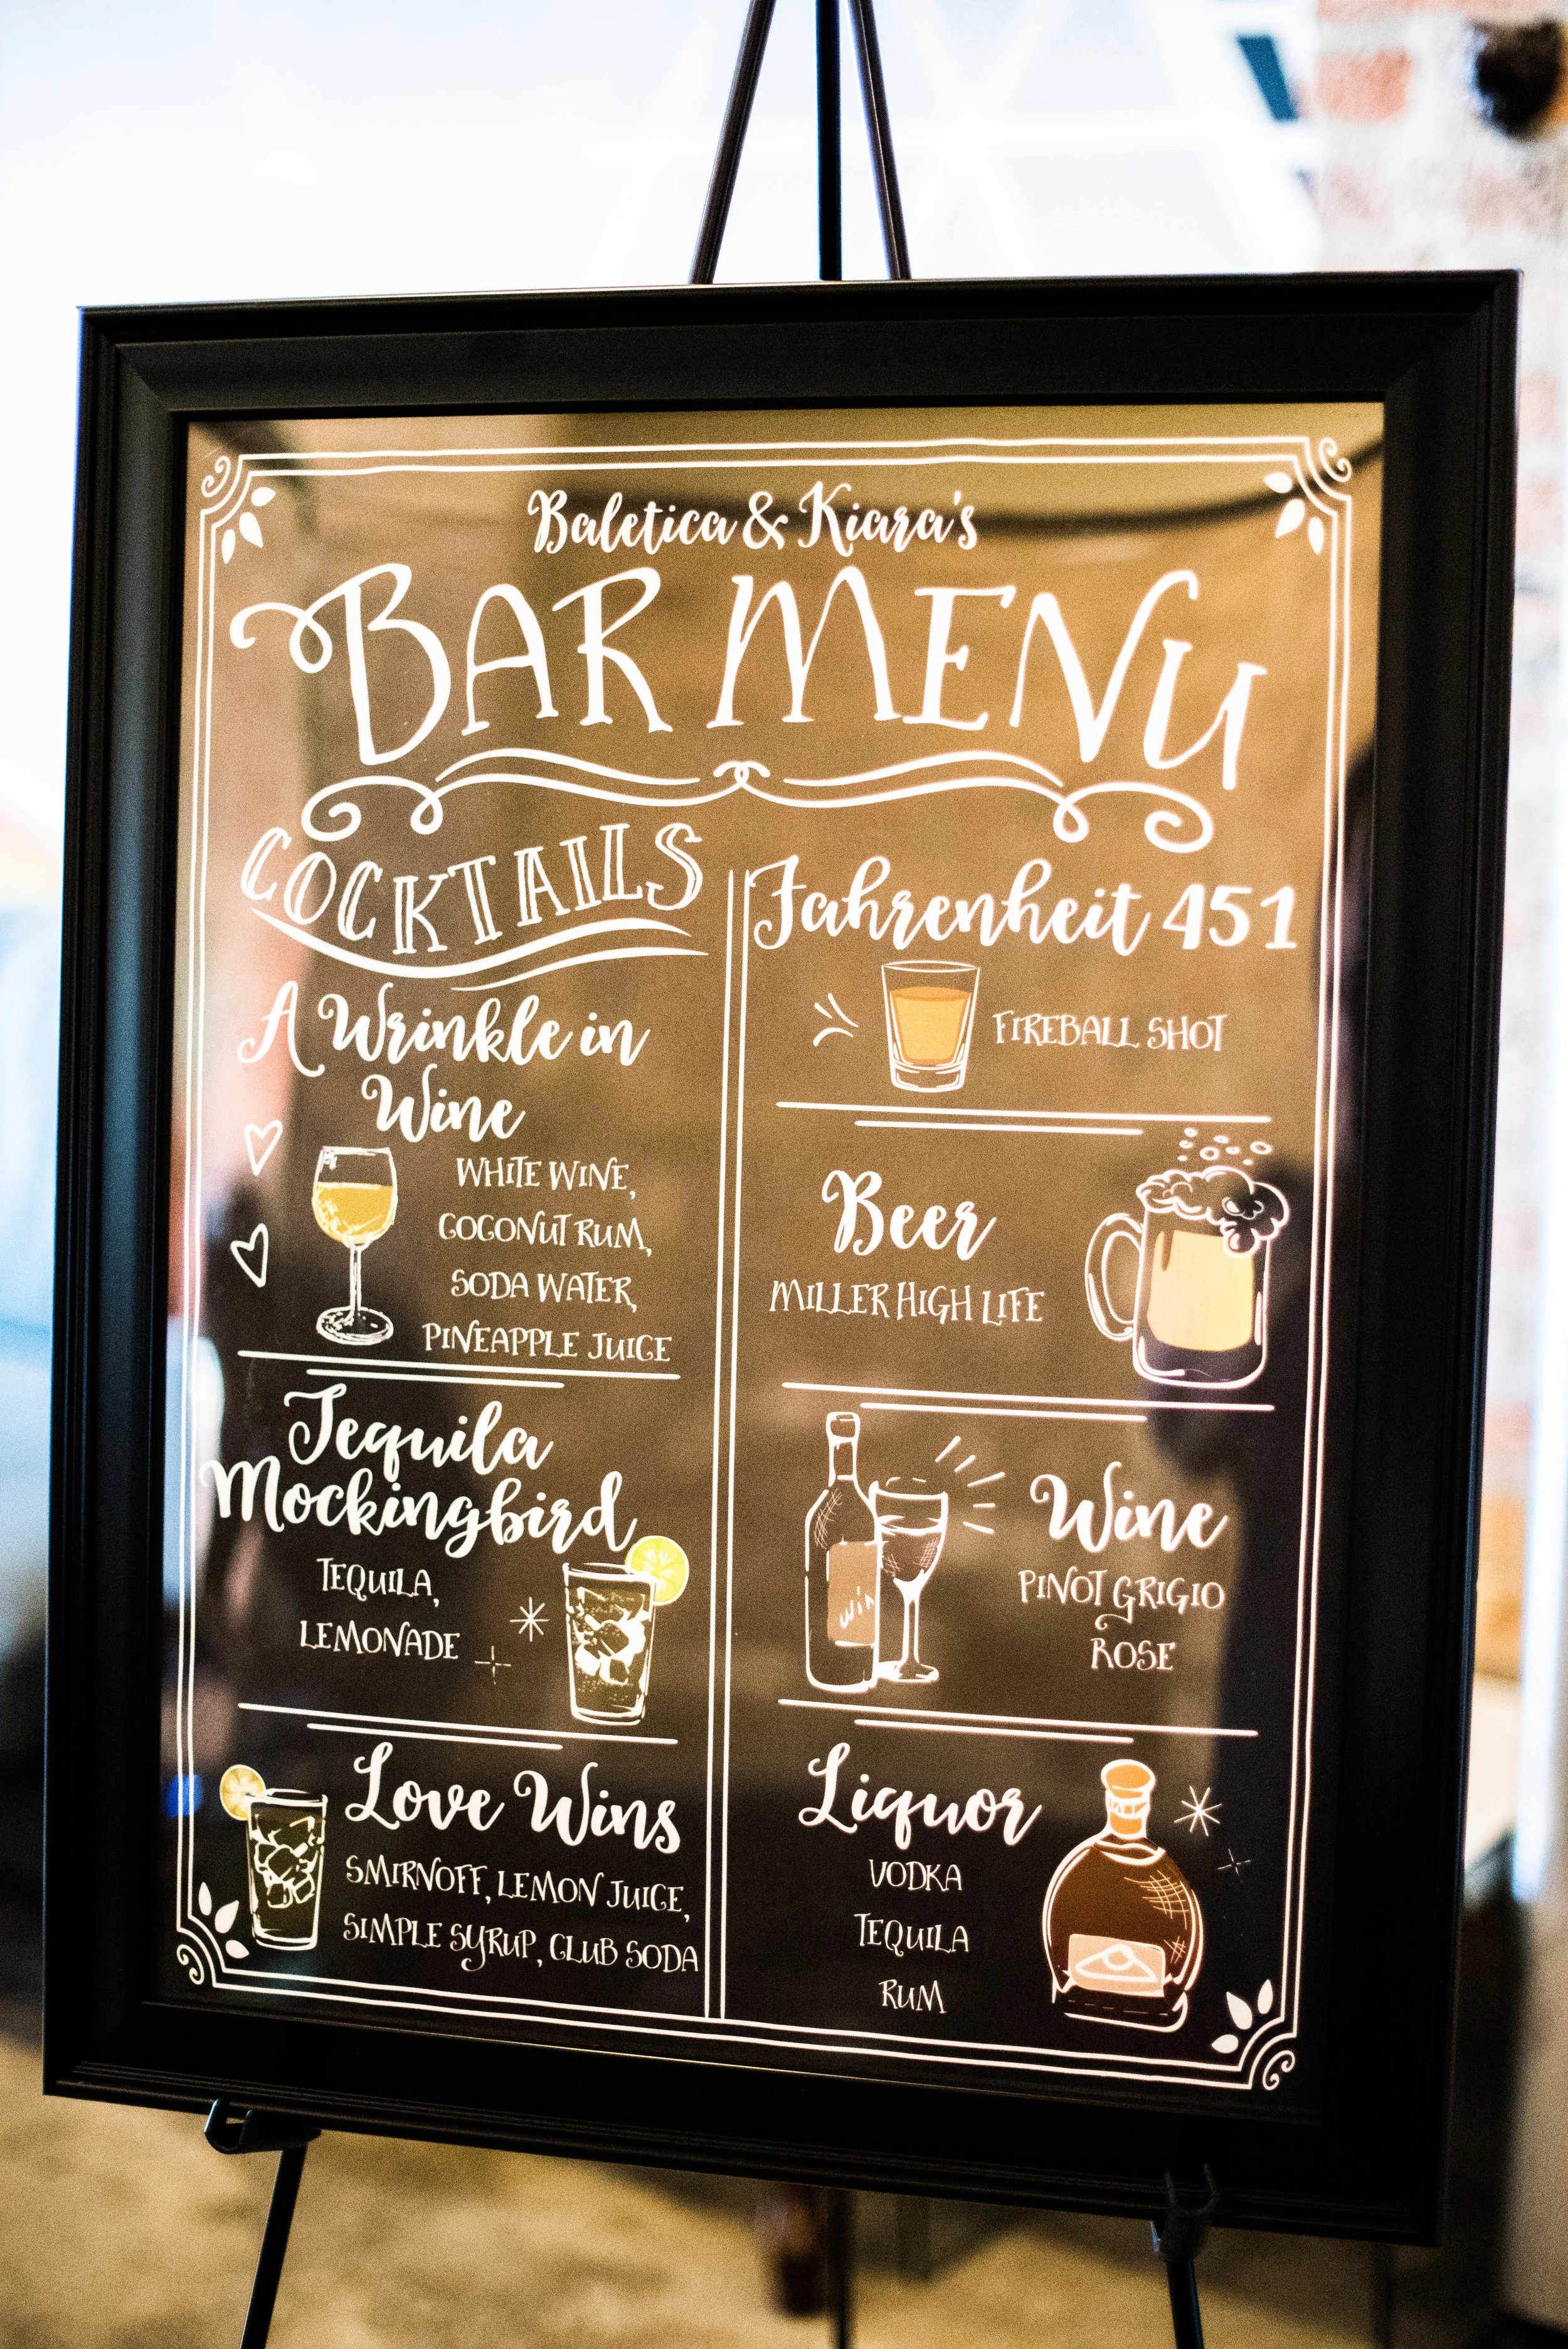 Baletica & Kiara's
BAR MENU
COCKTAILS
A Wrinkle in
Wine
WHITE WINE,
COCONUT RUM,
SODA WATER,
PINEAPPLE JUICE
Tequila
Mockingbird
TEQUILA,
LEMONADE
Love Wins
SMIRNOFF, LEMON JUICE,
SIMPLE SYRUP, CLUB SODA
Fahrenheit 451
FIREBALL SHOT
Beer
MILLER HIGH LIFE
win
Wine
PINOT GRIGIO
ROSE
Liquor
VODKA
TEQUILA
RUM